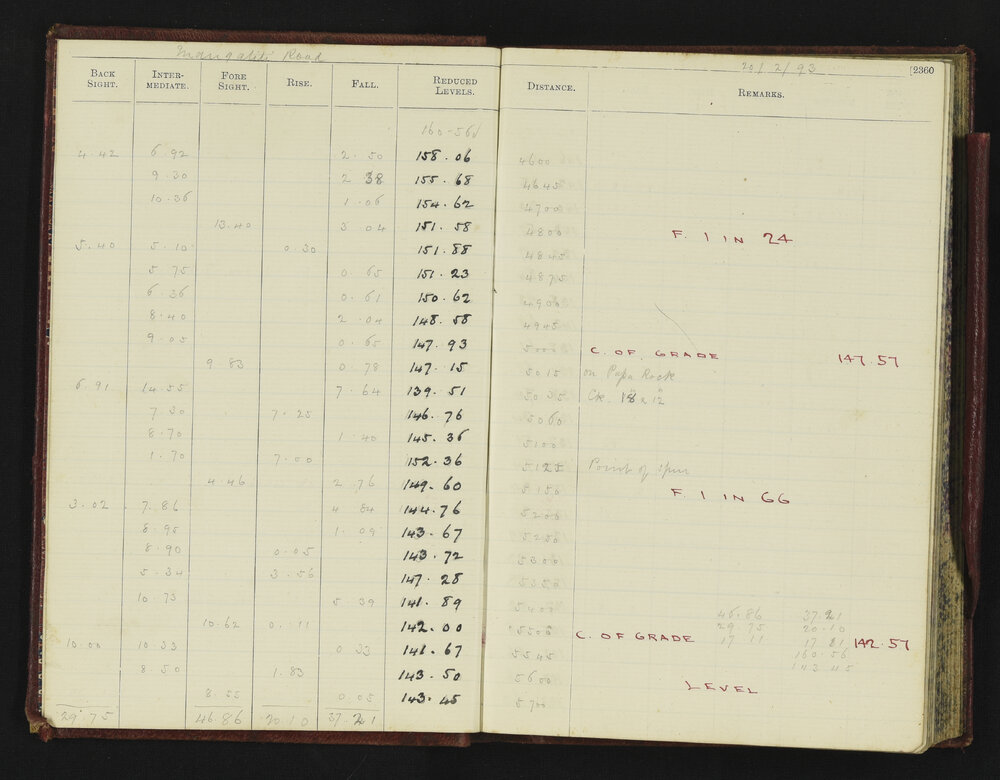 Road 20/2/93 [2360
BACK SIGHT. INTER-MEDIATE. FORE SIGHT. RISE. FALL. REDUCED LEVELS. DISTANCE. REMARKS.
160-56
4.42 6.92 2.50 158.06 4600
9.30 2 38 155.68 4645
10.36 1.06 154.62 4700
13.40 3 04 151.58 4800 F. 1 IN 24
5.40 5.10 0.30 151.88 4845
5.75 0.65 151.23 4875
6.36 0.61 150.62 4900
8.40 2.04 148.58 4945
9.05 0.65 147.93 5000 C. OF. GRADE 147.57
9.83 0.78 147.15 5015 on Papa Rock
6.91 14.55 7.64 139.51 5035 Ck. 18 x 12
7 30 7.25 146.76 5060
8.70 1.40 145.36 5100
1.70 7.00 152.36 5125 Point of spur
4.46 2 76 149.60 5150 F. 1 IN 66
3.02 7.86 4 84 144.76 5200
8.95 1.09 143.67 5250
8.90 0.05 143.72 5300
5.34 3.56 147.28 5350
10.73 5.39 141.89 5400 46.86 37.21
10.62 0.11 142.00 5506 C. OF GRADE 29.75 20.10
17.11 17.11 142.57
10.00 10.33 0 33 141.67 5545 160.56
8 50 1.83 143.50 5600 143.45
8.55 0.05 143.45 5700 LEVEL
29.75 46.86 20.10 37.21